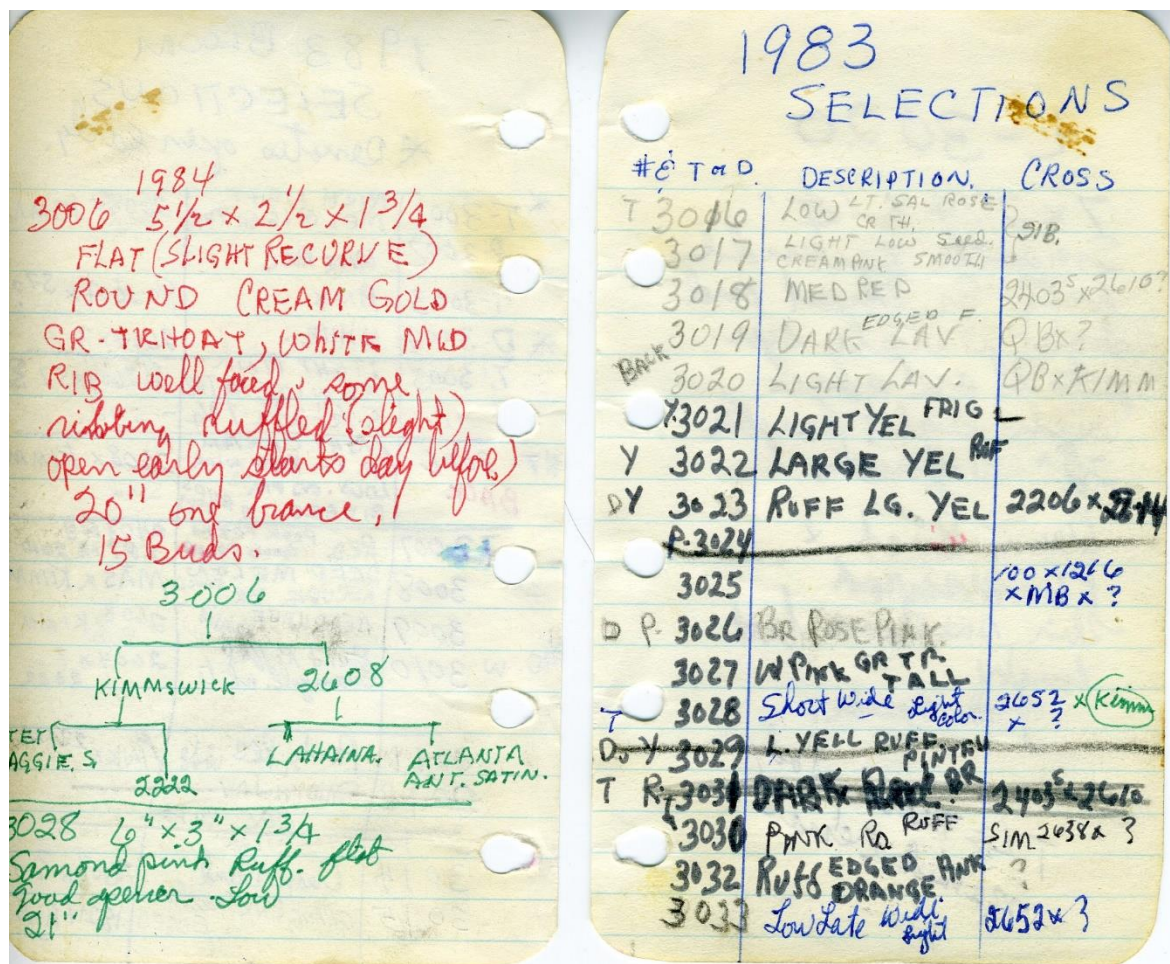 1984
3006 5 1/2 x 2 1/2 x 1 3/4
FLAT (SLIGHT RECURVE)
ROUND CREAM GOLD
GR-TRHOAT, WHITE MID
RIB well faced. some
ribbing ruffled (slight)
open early starts day before)
20" one brance,
15 Buds.
3006
KIMMSWICK 2608
TET
AGGIE. S
2222
LAHAINA. ATLANTA
ANT. SATIN.
3028 6" x 3" x 1 3/4
Samond pink Ruff. flat
Good opener. Low
21"
1983
SELECTIONS
#& T or D. DESCRIPTION. CROSS
T 3016 LOW LT. SAL ROSE
CR TH. SIB.
3017 LIGHT LOW Seed.
CREAM PINK SMOOTH
3018 MED RED 2403S x 2610?
3019 DARK EDGED F. LAV QBx?
BACK 3020 LIGHT LAV. QBxKIMM
Y. 3021 LIGHT YEL FRIG -
Y 3022 LARGE YEL RUF
DY 3023 RUFF LG. YEL 2206 x
P-3024
3025 100 x 1266
x MB x ?
D P. 3026 BR ROSE PINK.
3027 W PINK GR TR
TALL
T 3028 Short Wide Light Color. 2652 x Kimm
x ?
D. Y 3029 L. YELL RUFF
T R. 3031 DARK BR 2403S x 2610
T 3030 PINK Ro RUFF SIM 2638x ?
3032 Ruff EDGED PINK ?
ORANGE
3033 Low Late Wide 2652 x ?
Light